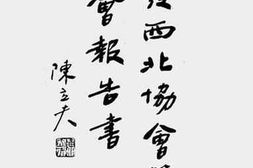 西北協會
會報告書
陳立夫